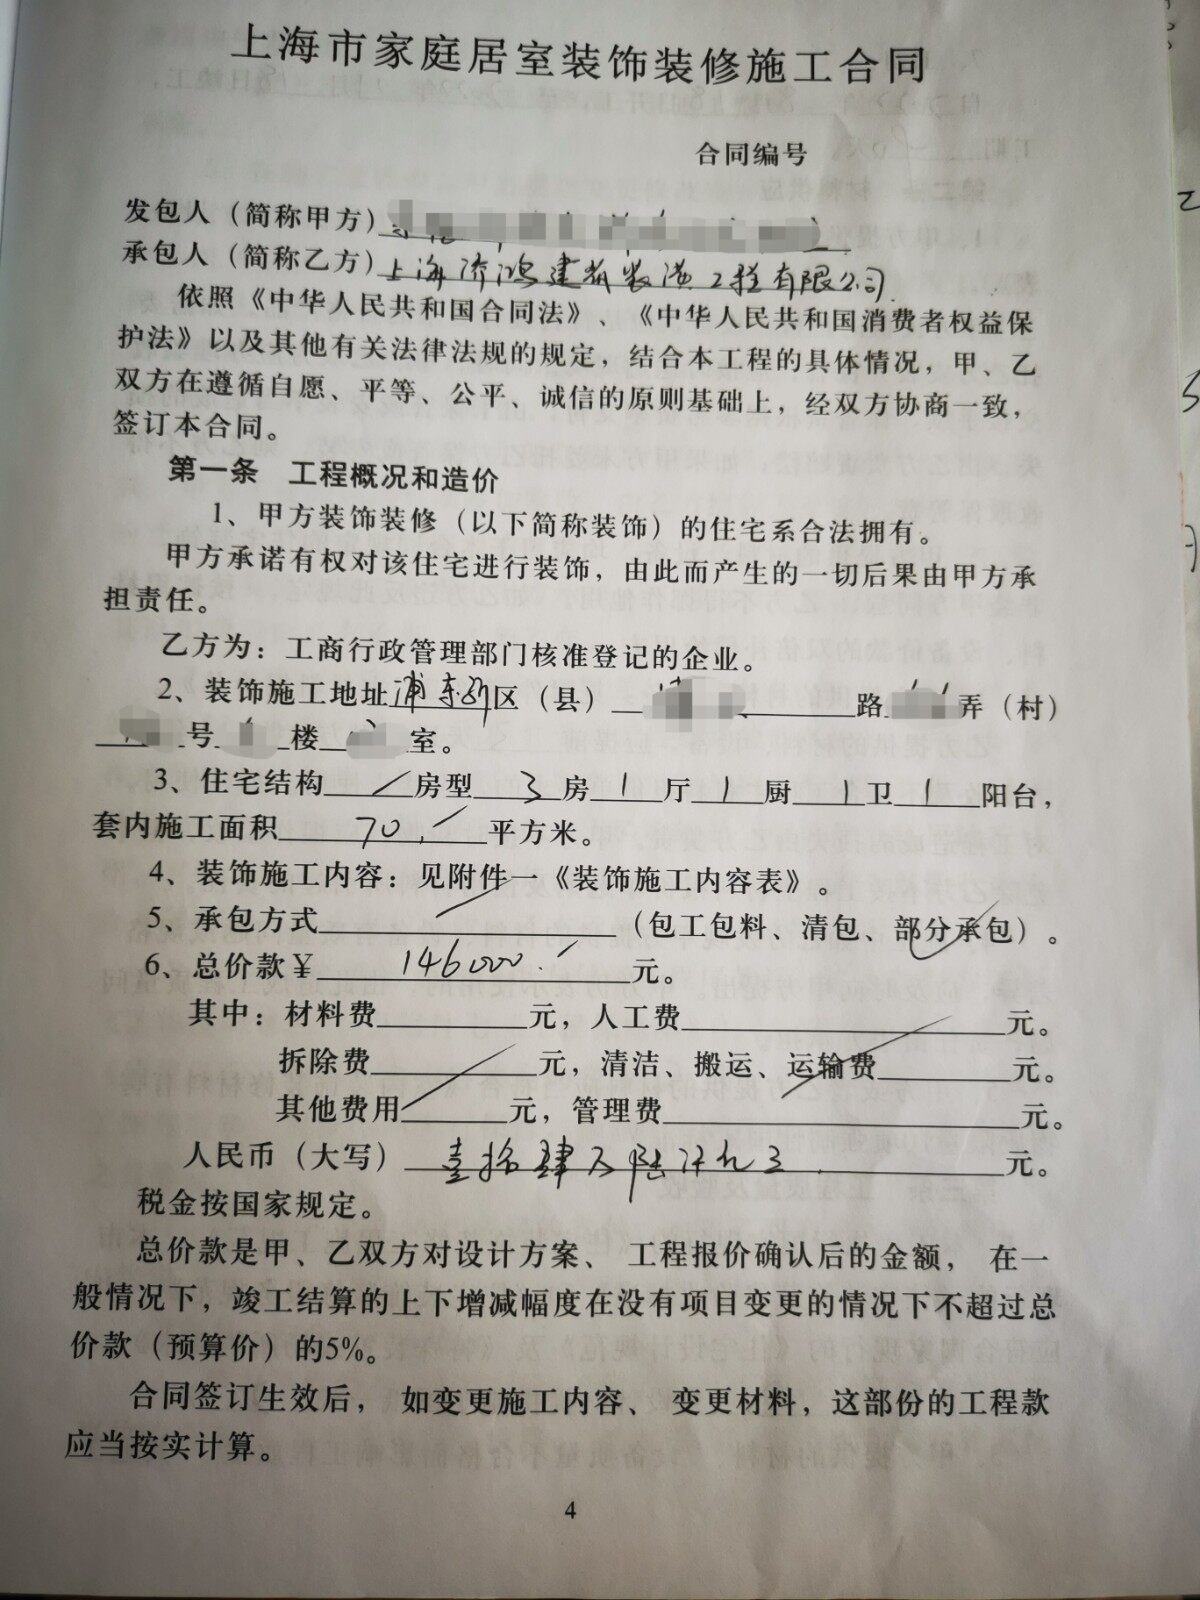 上海市家庭居室装饰装修施工合同
合同编号
发包人（简称甲方）
承包人（简称乙方）上海侨鸿建筑装潢工程有限公司
依照《中华人民共和国合同法》、《中华人民共和国消费者权益保
护法》以及其他有关法律法规的规定，结合本工程的具体情况，甲、乙
双方在遵循自愿、平等、公平、诚信的原则基础上，经双方协商一致，
签订本合同。
第一条 工程概况和造价
1、甲方装饰装修（以下简称装饰）的住宅系合法拥有。
甲方承诺有权对该住宅进行装饰，由此而产生的一切后果由甲方承
担责任。
乙方为：工商行政管理部门核准登记的企业。
2、装饰施工地址浦东新区（县）路弄（村）
号楼室。
3、住宅结构／房型3房1厅1厨1卫1阳台，
套内施工面积70.平方米。
4、装饰施工内容：见附件一《装饰施工内容表》。
5、承包方式（包工包料、清包、部分承包）。
6、总价款￥146000.元。
其中：材料费元，人工费元。
拆除费元，清洁、搬运、运输费元。
其他费用元，管理费元。
人民币（大写）壹拾肆万陆仟元正元。
税金按国家规定。
总价款是甲、乙双方对设计方案、 工程报价确认后的金额， 在一
般情况下，竣工结算的上下增减幅度在没有项目变更的情况下不超过总
价款（预算价）的5%。
合同签订生效后， 如变更施工内容、 变更材料，这部份的工程款
应当按实计算。
4